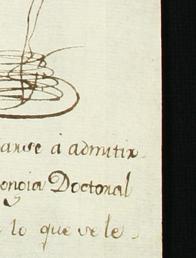 arse à admitir
Doctoral
lo que se le